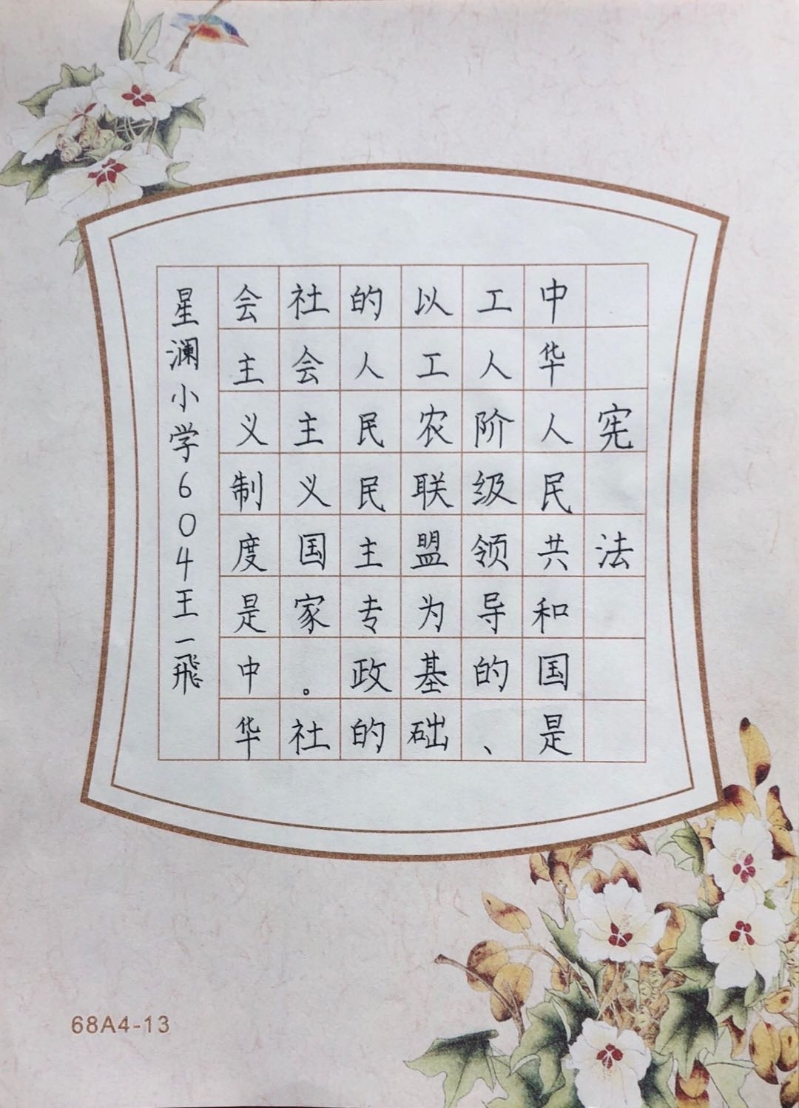 宪法
中华人民共和国是
工人阶级领导的、
以工农联盟为基础
的人民民主专政的
社会主义国家。社
会主义制度是中华
星澜小学604王一飛
68A4-13